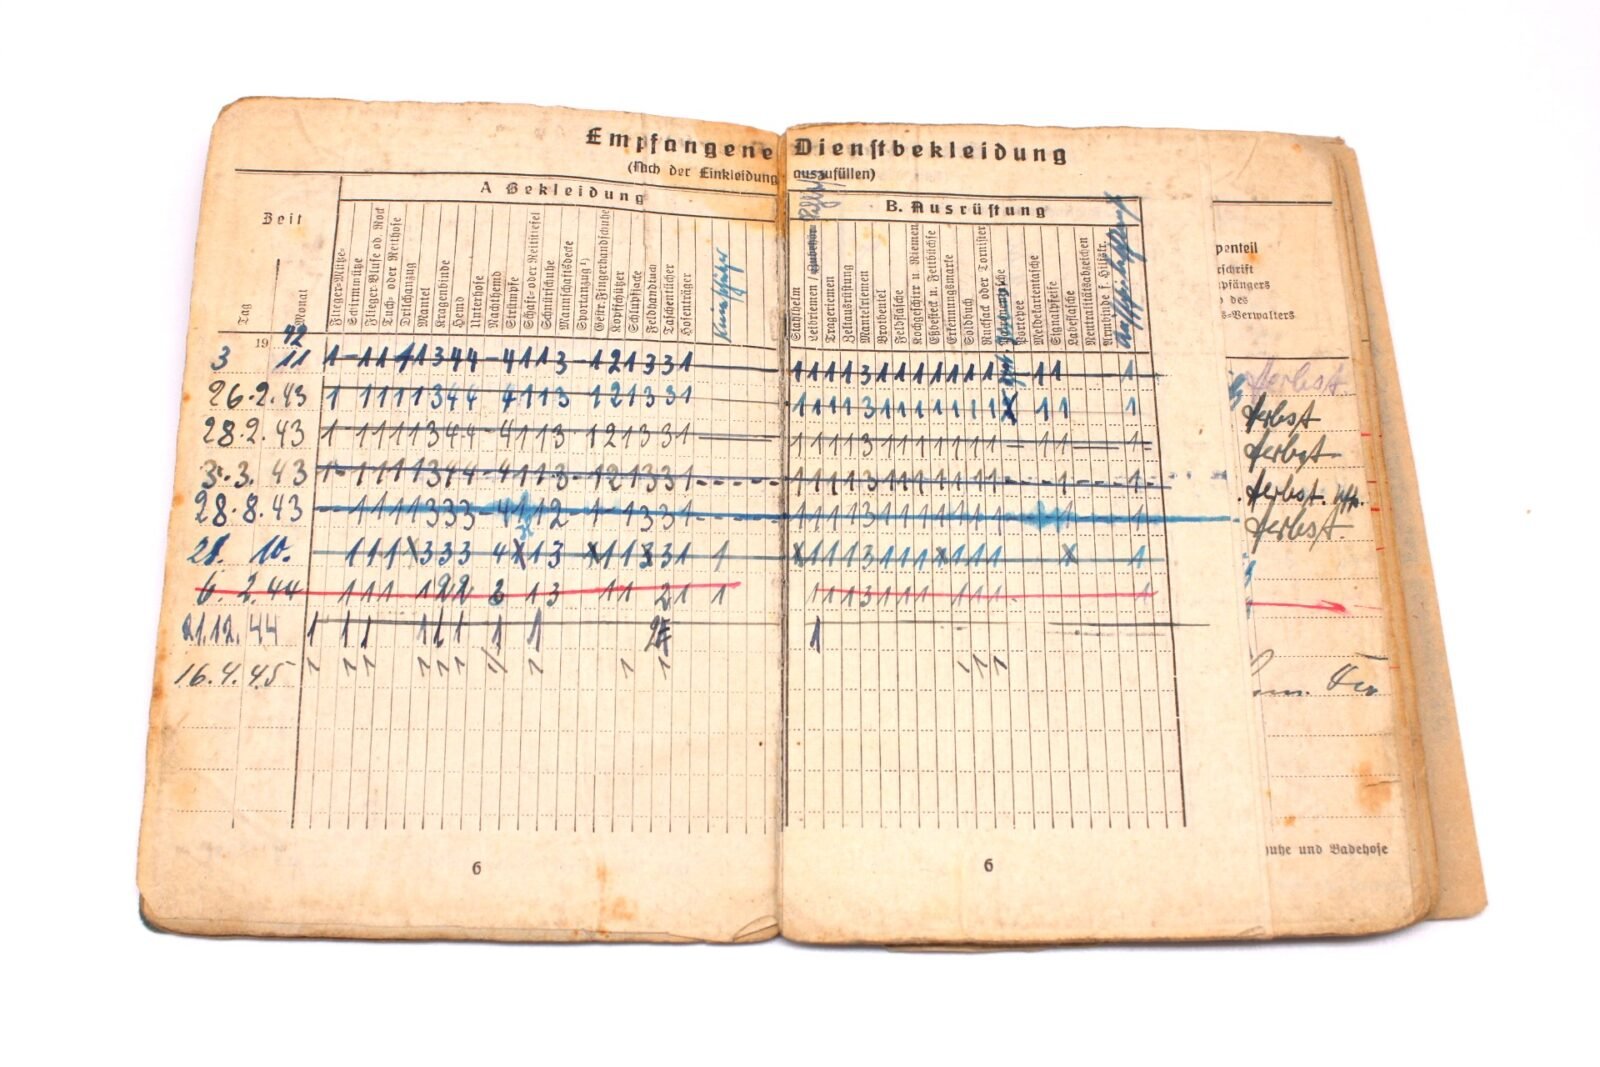 Empfangene Dienstbekleidung
(Nach der Einkleidung auszufüllen)
A Bekleidung
B. Ausrüstung
Zeit
Tag
Monat
Flieger-Mütze
Schirmmütze
Flieger-Bluse od. Rock
Tuch- oder Reithose
Drillichanzug
Mantel
Kragenbinde
Hemd
Unterhose
Nachthemd
Strümpfe
Schaft- oder Reitstiefel
Schnürschuhe
Mannschaftsdecke
Sportanzug ¹)
Gestr. Fingerhandschuhe
Kopfschützer
Schlupfjacke
Feldhandtuch
Taschentücher
Hosenträger
Stahlhelm
Leibriemen / Zubehör
Trageriemen
Zeltausrüstung
Mantelriemen
Brotbeutel
Feldflasche
Kochgeschirr u Riemen
Eßbesteck u. Fettbüchse
Erkennungsmarke
Soldbuch
Rucksack oder Tornister
Portepee
Meldekartentasche
Signalpfeife
Labeflasche
Neutralitätsabzeichen
Armbinde f. Hilfskr.
penteil
rschrift
pfängers
des
s-Verwalters
19 42
3 11 1 - 1 1 1 1 3 4 4 - 4 1 1 3 - 1 2 1 3 3 1 1 1 1 1 3 1 1 1 1 1 1 1 1 1 1 Herbst
26.2.43 1 1 1 1 1 3 4 4 4 1 1 3 1 2 1 3 3 1 1 1 1 1 3 1 1 1 1 1 1 1 X 1 1 1 Herbst
28.2.43 1 - 1 1 1 1 3 4 4 - 4 1 1 3 - 1 2 1 3 3 1 1 1 1 1 3 1 1 1 1 1 1 1 - 1 1 - 1 Herbst
3.3.43 1 - 1 1 1 1 3 4 4 - 4 1 1 3 - 1 2 1 3 3 1 1 1 1 1 3 1 1 1 1 1 1 1 - 1 - 1 Herbst.
28.8.43 1 1 1 1 3 3 3 - 4 1 1 2 1 - 1 3 3 1 1 1 1 1 3 1 1 1 1 1 1 1 1 1 Herbst.
21. 10. 1 1 1 X 3 3 3 4 X 1 3 X 1 1 3 3 1 1 X 1 1 1 3 1 1 1 X 1 1 1 X 1
6. 2.44 1 1 1 1 2 2 3 1 3 1 1 2 1 1 1 1 1 3 1 1 1 1 1 1 1
21.12.44 1 1 1 1 1 1 1 1 1
16.4.45 1 1 1 1 1 1 1 1 1 1 1 1
uhe und Badehose
6
6